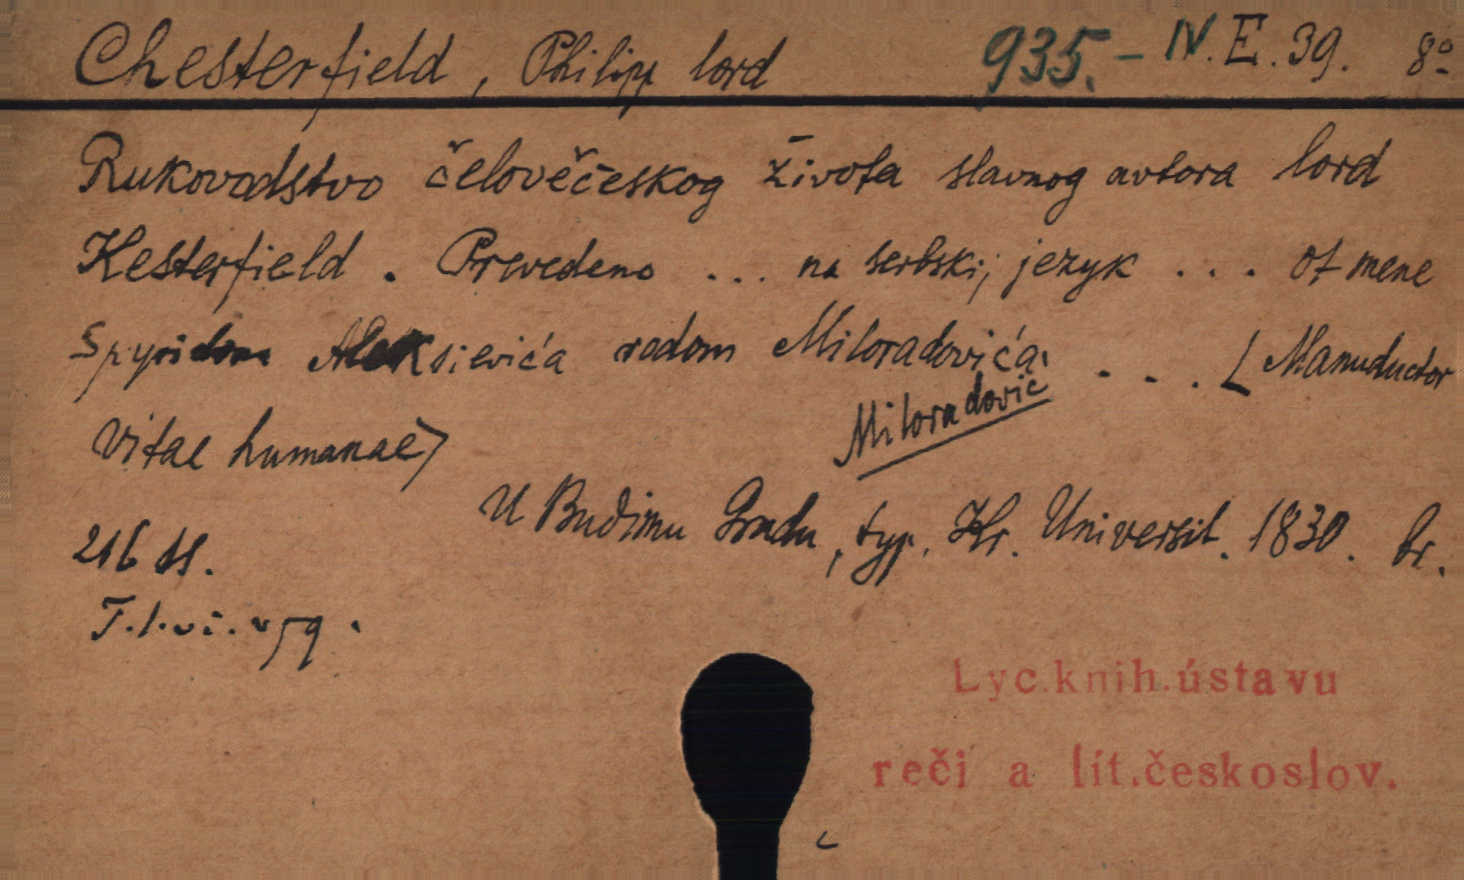 Chesterfield, Philipp lord 935.- IV. E. 39. 8º
Rukovodstvo čelověčeskog života slavnog avtora lord
Kesterfield. Prevedeno ... na serbskij jezyk ... ot mene
Spyridona Aleksievića rodom Miloradovića. ... [Manuductor
Vitae humanae]
Miloradović
U Budimu Gradu, typ. Kr. Universit. 1830. br.
216 st.
Lyc.knih.ústavu
reči a lit.českoslov.